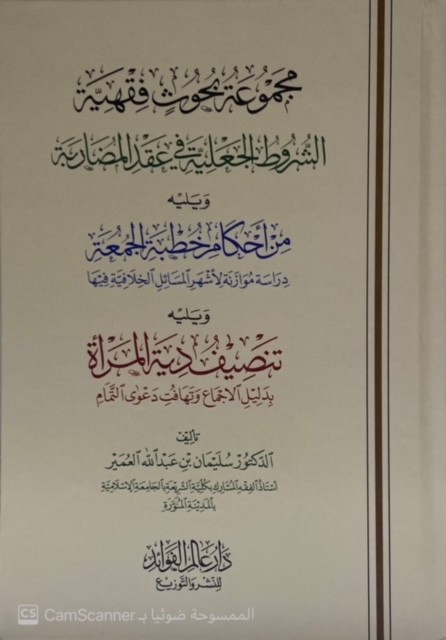 مجموعة بحوث فقهية
الشروط الجعلية في عقد المضاربة
ويليه
من أحكام خطبة الجمعة
دراسة موازنة لأشهر المسائل الخلافية فيها
ويليه
تنصيف دية المرأة
بدليل الإجماع وتهافت دعوى التمام
تأليف
الدكتور سليمان بن عبد الله العمير
أستاذ الفقه المشارك بكلية الشريعة بالجامعة الإسلامية
بالمدينة المنورة
دار عالم الفوائد
للنشر والتوزيع
الممسوحة ضوئيا بـ CamScanner
CS